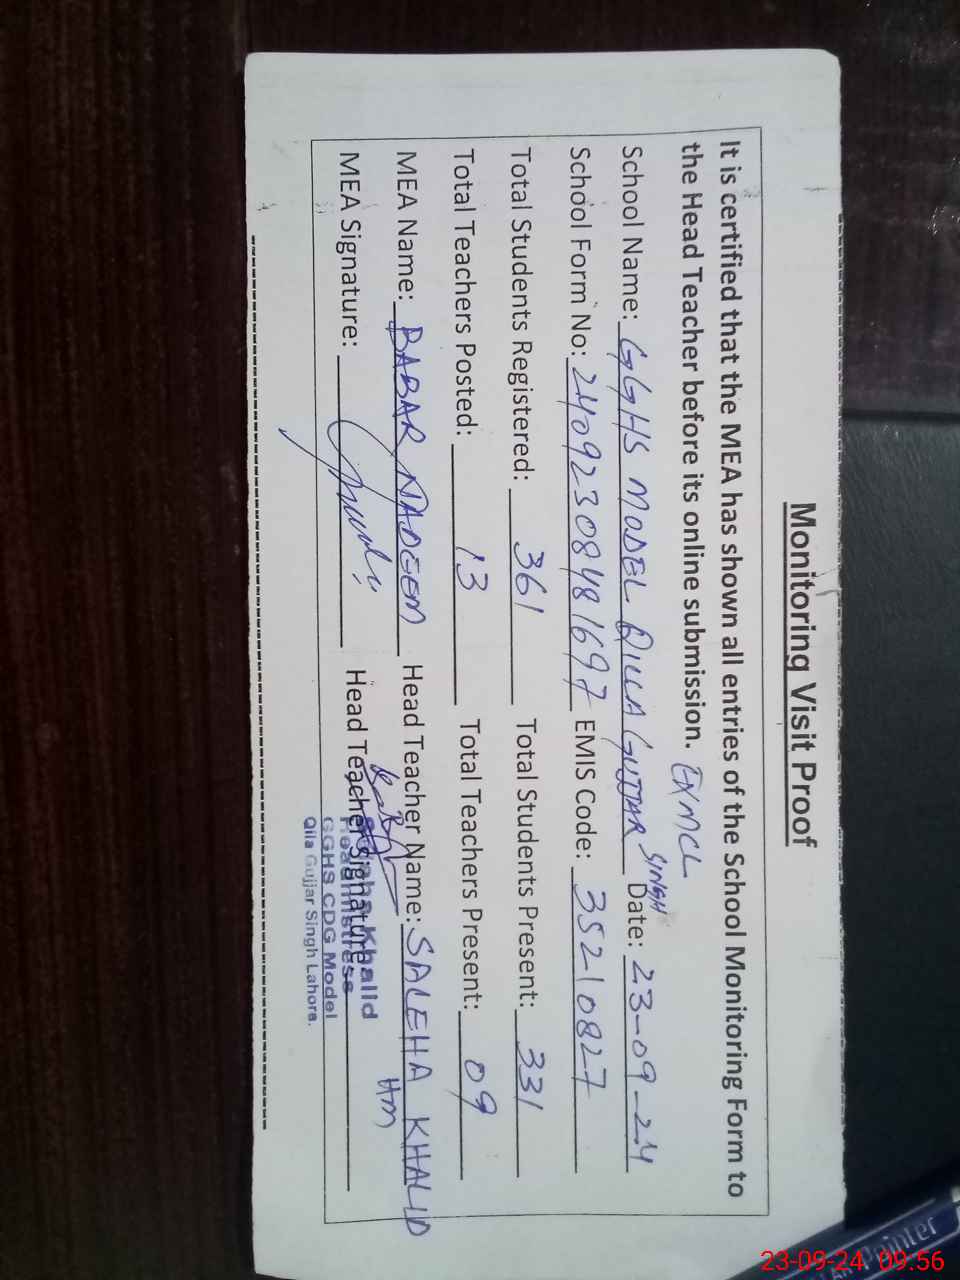 Monitoring Visit Proof
It is certified that the MEA has shown all entries of the School Monitoring Form to
the Head Teacher before its online submission. EXMCL
School Name: GGHS MODEL QILLA GUJJAR SINGH Date: 23-09-24
School Form No: 24092308481697 EMIS Code: 35210827
Total Students Registered: 361 Total Students Present: 331
Total Teachers Posted: 13 Total Teachers Present: 09
MEA Name: BABAR NADEEM Head Teacher Name: SALEHA KHALID
HM
MEA Signature: Head Teacher Signature:
Khalid
Headmistress
GGHS CDG Model
Qila Gujjar Singh Lahore.
Pointer
23-09-24 09:56